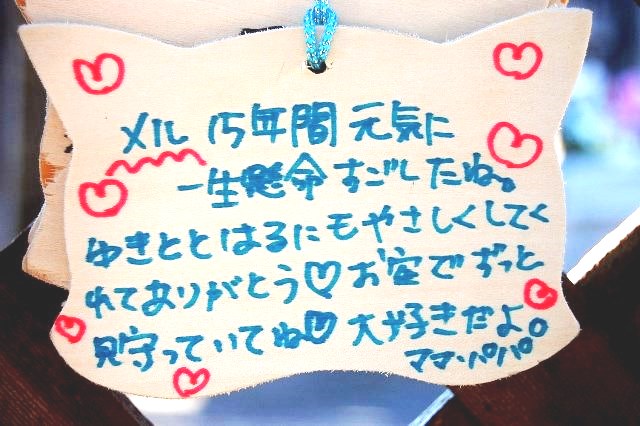 メル 15年間 元気に
一生懸命 すごしたね。
ゆきととはるにもやさしくしてく
れてありがとう♡お空でずっと
見守っていてね♡大好きだよ。
ママ・パパ